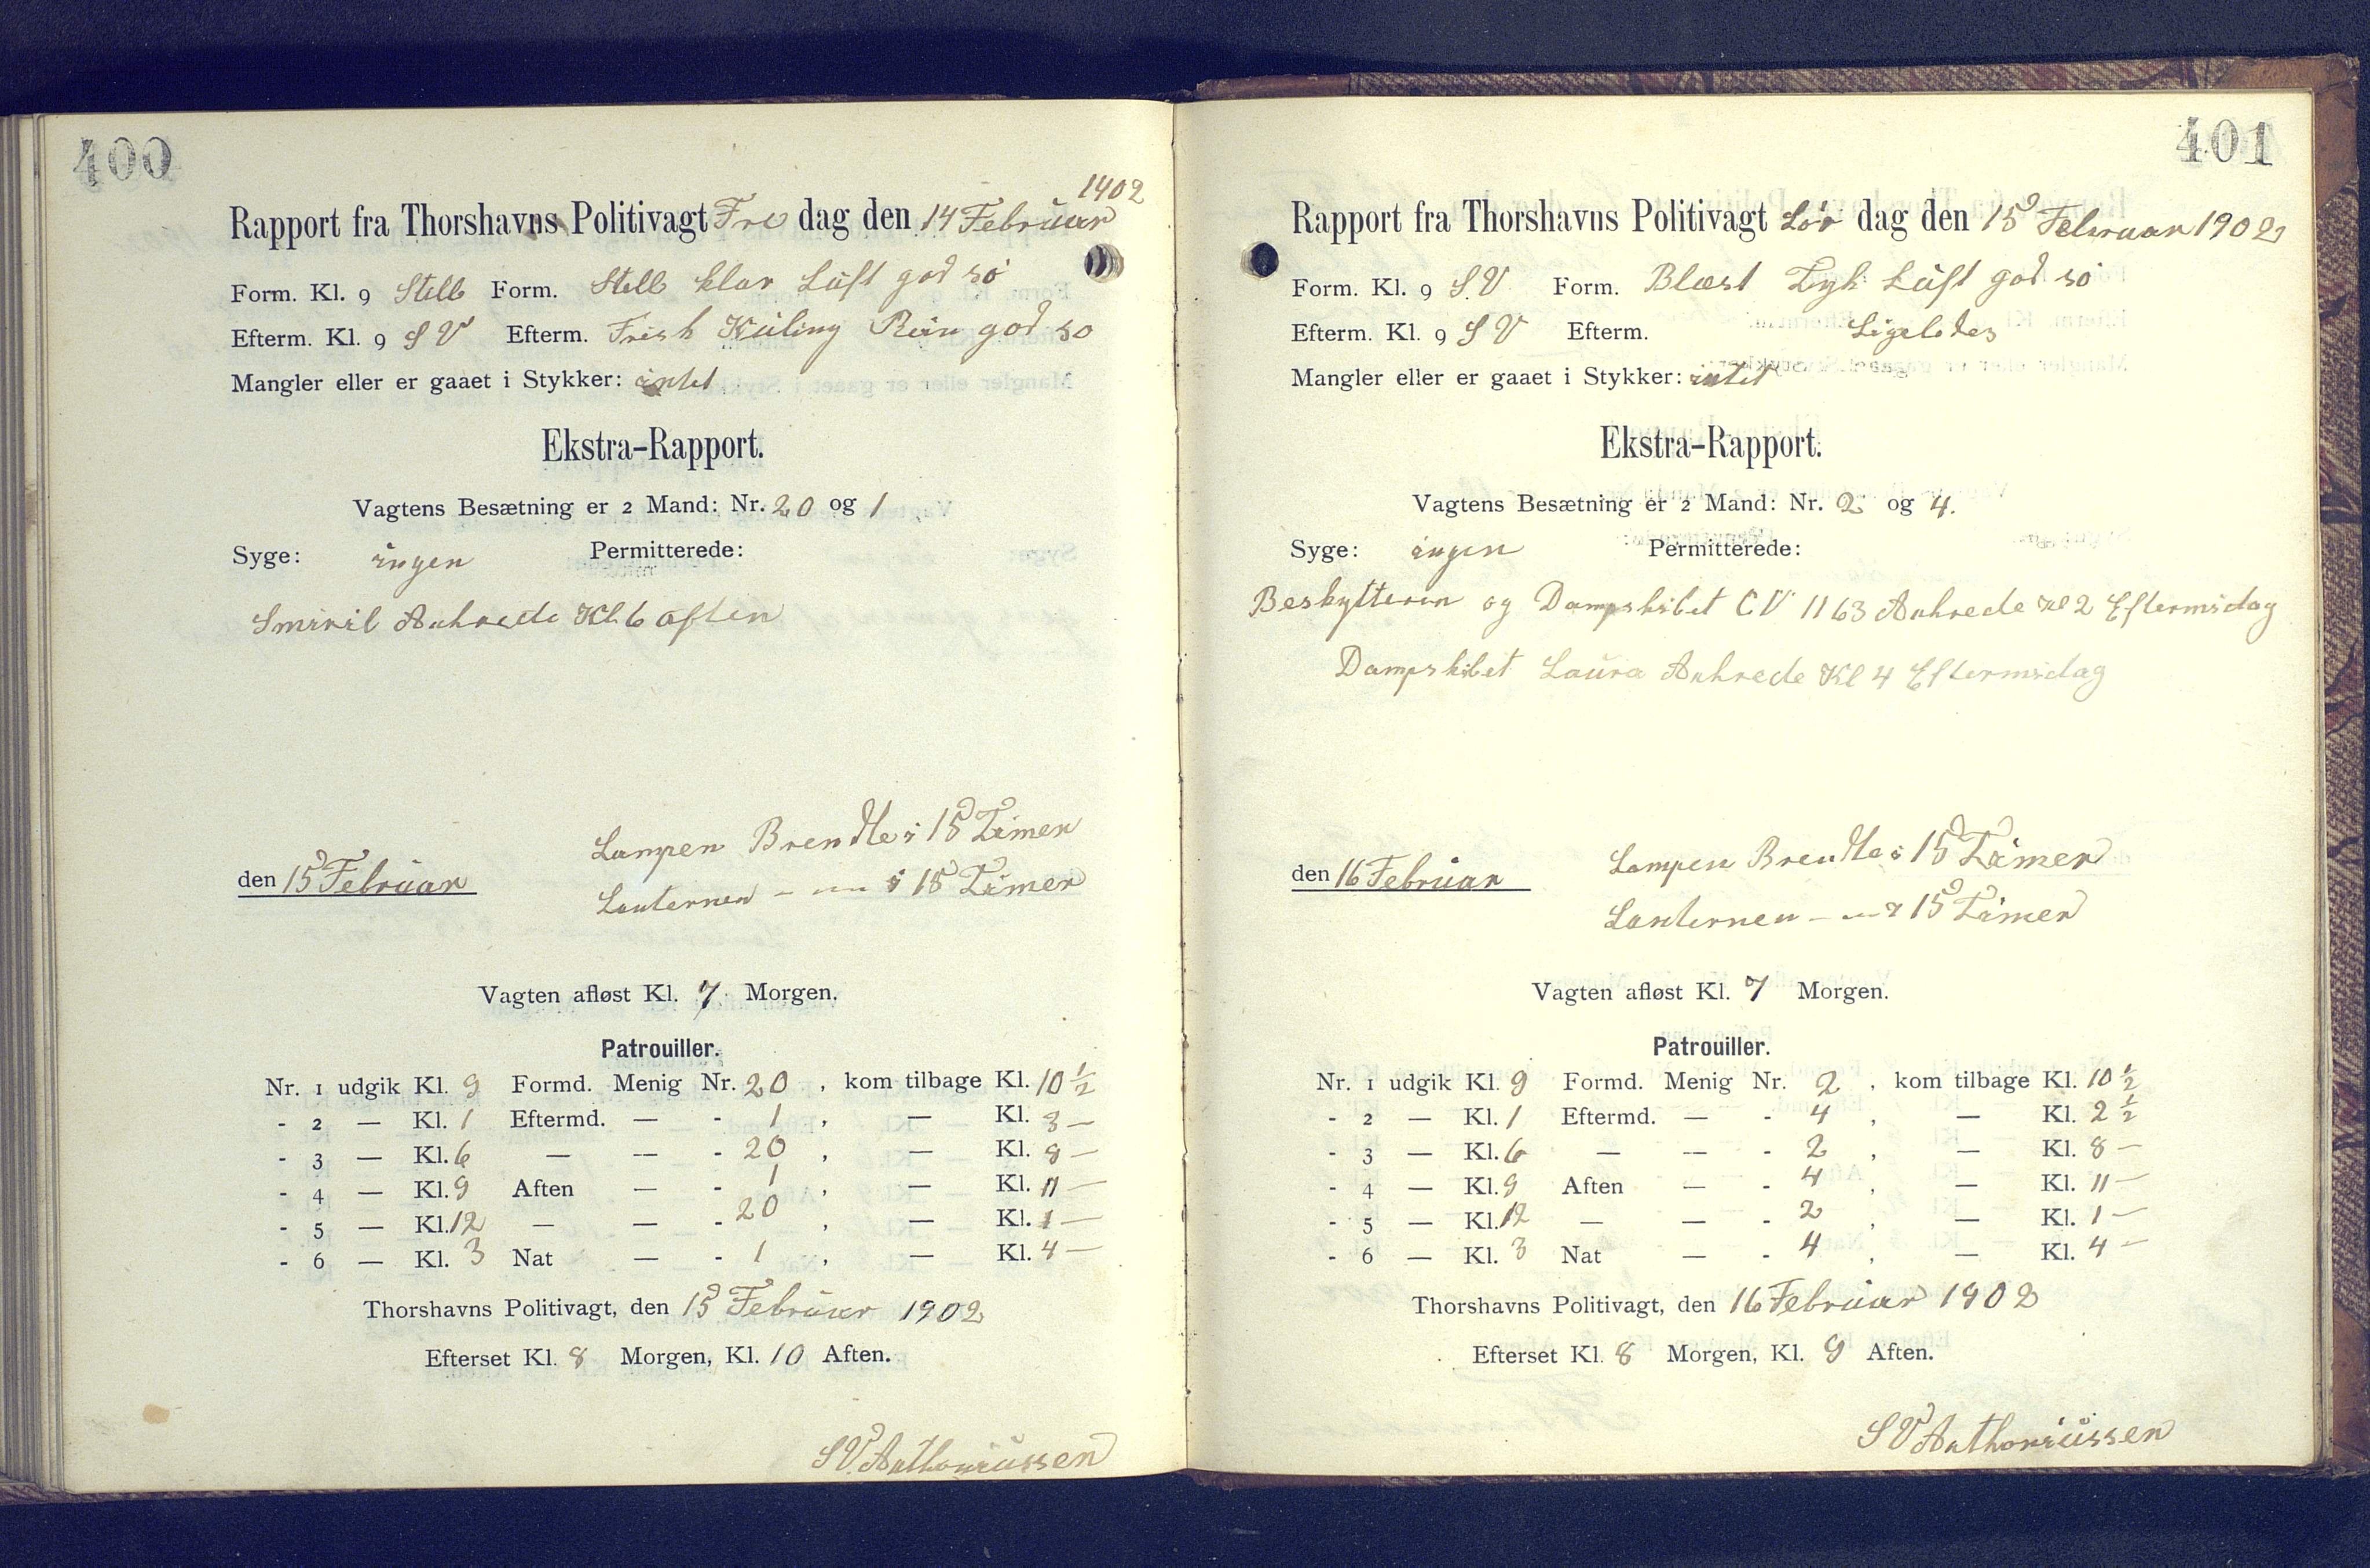 400
1902
Rapport fra Thorshavns Politivagt Fre dag den 14 Februar
Form. Kl. 9 Stille Form. Stille klar Luft god sø
Efterm. Kl. 9 S V Efterm. Frisk Kuling Rein god so
Mangler eller er gaaet i Stykker: intet
Ekstra-Rapport.
Vagtens Besætning er 2 Mand: Nr. 20 og 1
Syge: ingen Permitterede:
Smiril Ankrede Kl 6 aften
Lampen Brendte i 15 Timer
den 15 Februar
Lanternen - — i 15 Timer
Vagten afløst Kl. 7 Morgen.
Patrouiller.
Nr. 1 udgik Kl. 9 Formd. Menig Nr. 20 , kom tilbage Kl. 10 1/2
- 2 — Kl. 1 Eftermd. — - 1 , — Kl. 3 —
- 3 — Kl. 6 — — - 20 , — Kl. 8 —
- 4 — Kl. 9 Aften — - 1 , — Kl. 11 —
- 5 — Kl. 12 — — - 20 , — Kl. 1 —
- 6 — Kl. 3 Nat — - 1 , — Kl. 4 —
Thorshavns Politivagt, den 15 Februar 1902
Efterset Kl. 8 Morgen, Kl. 10 Aften.
S V Anthoniussen
401
Rapport fra Thorshavns Politivagt Lör dag den 15 Februar 1902
Form. Kl. 9 S.V. Form. Blæst Tyk Luft god sö
Efterm. Kl. 9 S V Efterm. Ligeledes
Mangler eller er gaaet i Stykker: intet
Ekstra-Rapport.
Vagtens Besætning er 2 Mand: Nr. 2 og 4.
Syge: ingen Permitterede:
Beskytteren og Dampskibet C V 1163 Ankrede Kl 2 Eftermidag
Dampskibet Laura Ankrede Kl 4 Eftermidag
Lampen Brendte i 15 Timer
den 16 Februar
Lanternen - — i 15 Timer
Vagten afløst Kl. 7 Morgen.
Patrouiller.
Nr. 1 udgik Kl. 9 Formd. Menig Nr. 2 , kom tilbage Kl. 10 1/2
- 2 — Kl. 1 Eftermd. — - 4 , — Kl. 2 1/2
- 3 — Kl. 6 — — - 2 , — Kl. 8 —
- 4 — Kl. 9 Aften — - 4 , — Kl. 11 —
- 5 — Kl. 12 — — - 2 , — Kl. 1 —
- 6 — Kl. 3 Nat — - 4 , — Kl. 4 —
Thorshavns Politivagt, den 16 Februar 1902
Efterset Kl. 8 Morgen, Kl. 9 Aften.
S V Anthoniussen